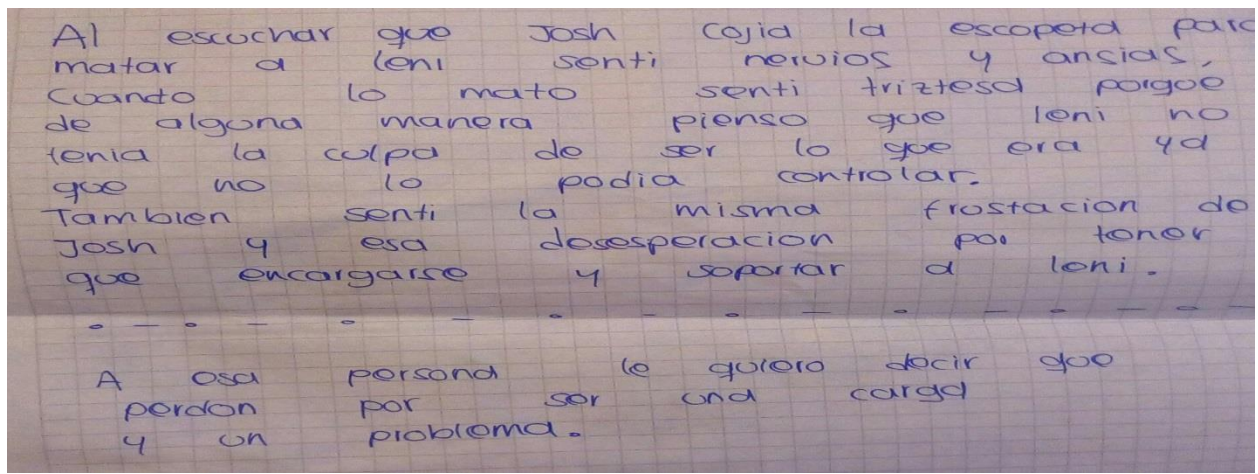 Al escuchar que Josh cojia la escopeta para
matar a leni senti nervios y ansias,
cuando lo mato senti triztesa porque
de alguna manera pienso que leni no
tenia la culpa de ser lo que era ya
que no lo podia controlar.
Tambien senti la misma frustacion de
Josh y esa desesperacion por tener
que encargarse y soportar a leni.
A esa persona le quiero decir que
perdon por ser una carga
y un problema.